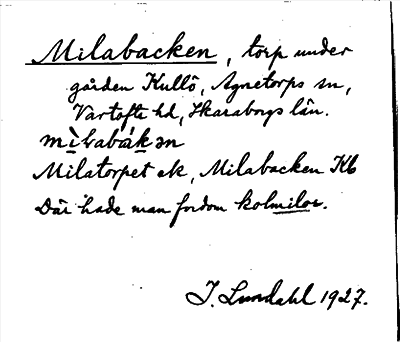 Milabacken, torp under
gården Kullö, Agnetorps sn,
Vartofta hd, Skaraborgs län.
mìlabák̠ən
Milatorpet ek, Milabacken Kb
Där hade man fordom kolmilor.
I. Lundahl 1927.